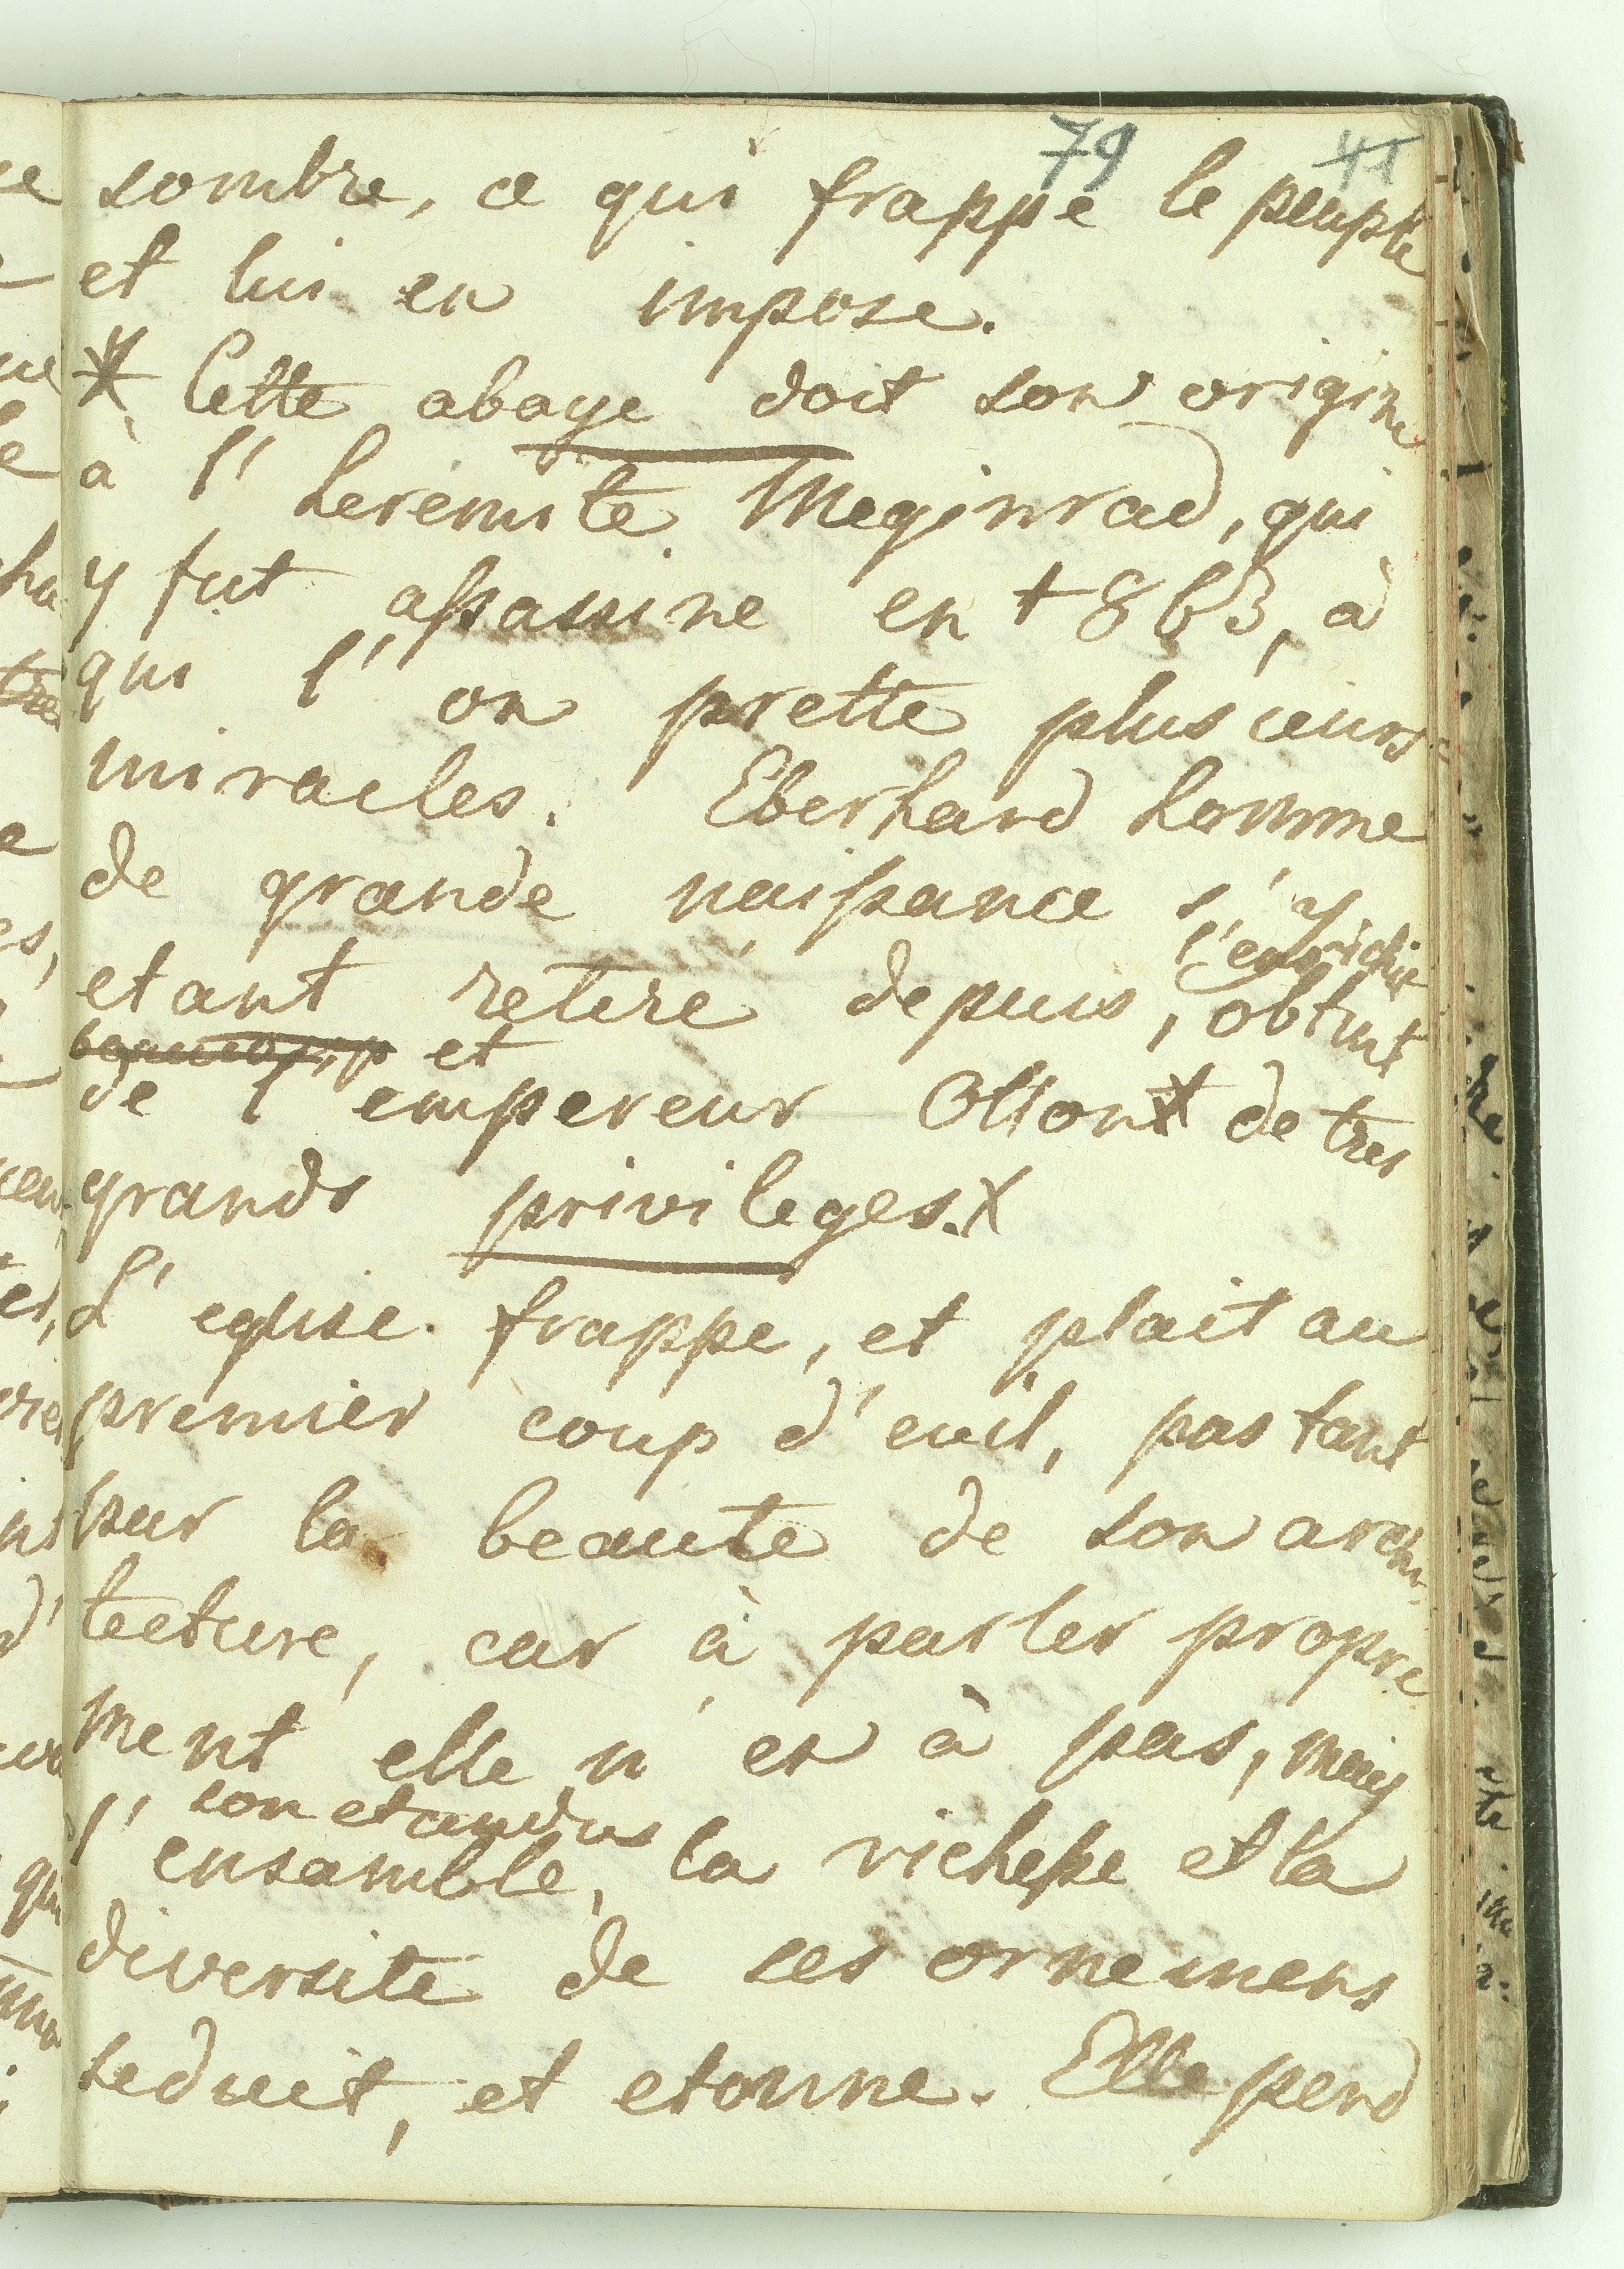 79 41
sombre, ce qui frappe le peuple
et lui en impose.
* Cette abaye doit son origine
à l'heremite Meginrad, qui
y fut assassine en + 863, à
qui l'on prette plusieurs
miracles. Eberhard homme
de grande naissance s'y
etant retire depuis, l'enrichit
beaucoup et obtint
de l'empereur Otton X de tres
grands privileges. X
L'eglise frappe, et plait au
premier coup d'euil, pas tant
par la beaute de son archi-
tecture, car à parler propre
ment elle n'en à pas, mais
son etandus
l'ensamble, la richesse et la
diversite de ses ornemens
seduit, et etonne. Elle perd